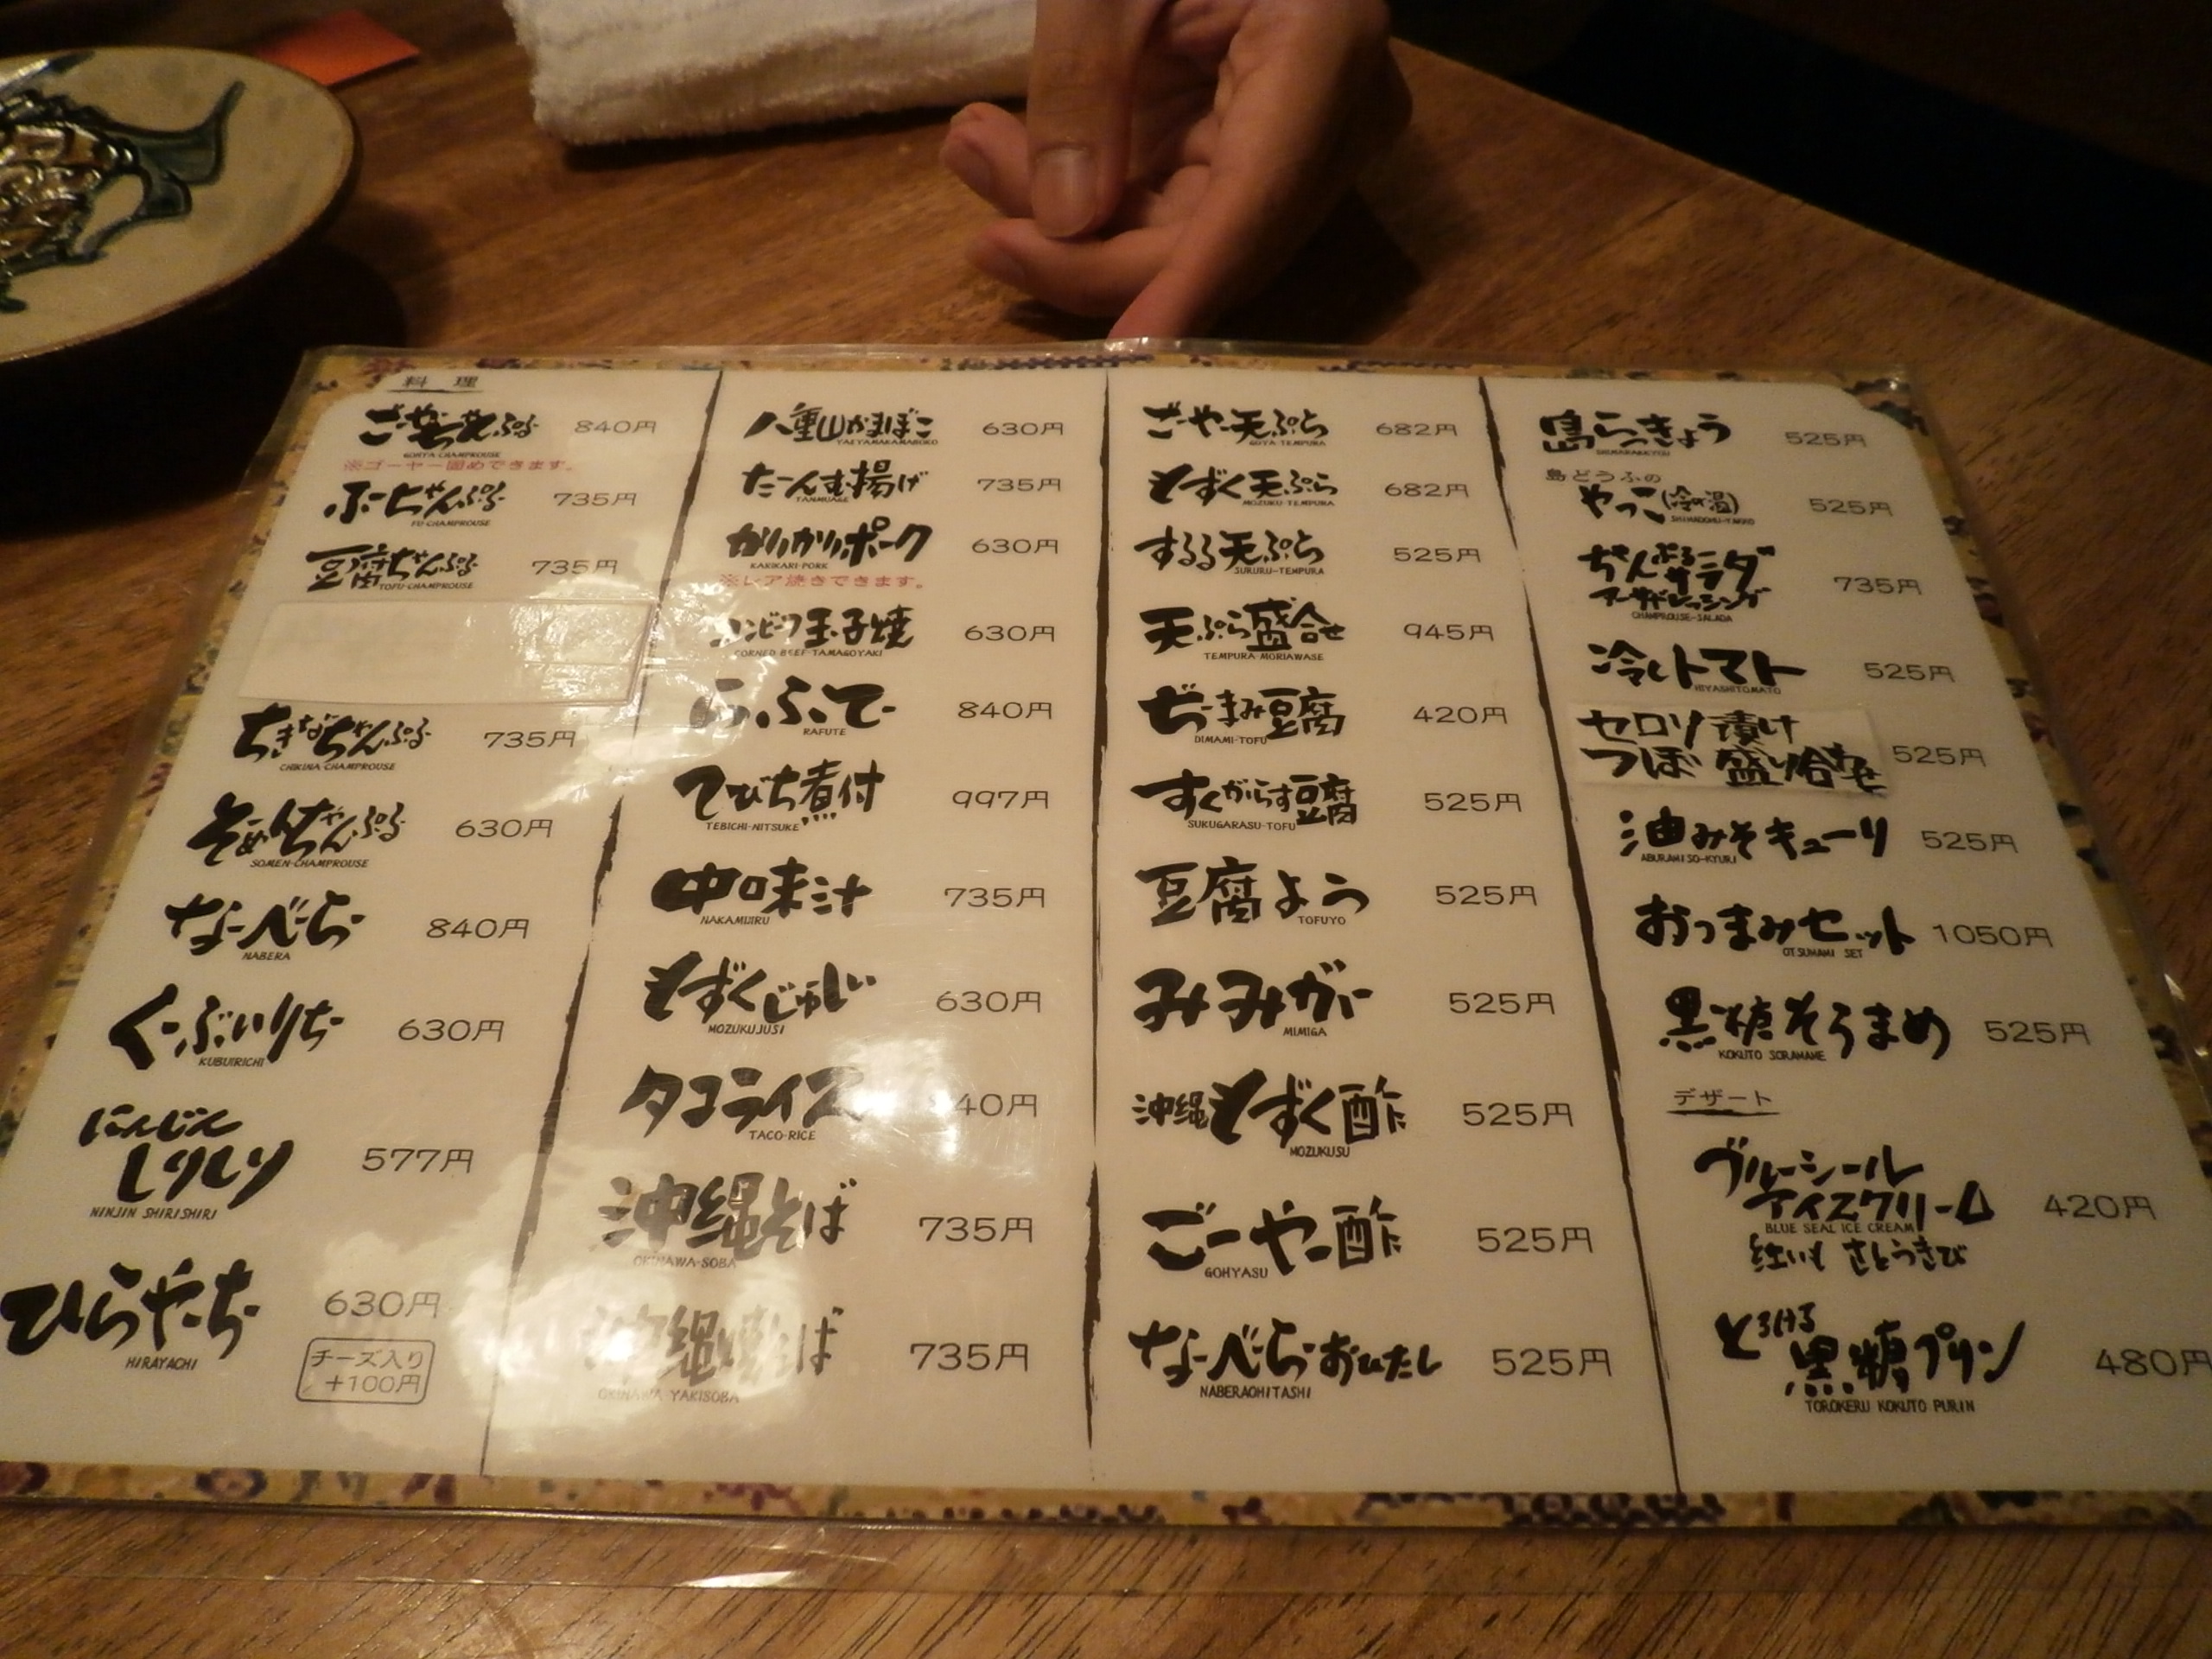 料理
ごーやーちゃんぷるー 840円
GOHYA-CHAMPROUSE
※ゴーヤー固めできます。
ふーちゃんぷるー 735円
FU-CHAMPROUSE
豆腐ちゃんぷるー 735円
TOFU-CHAMPROUSE
ちきなーちゃんぷるー 735円
CHIKINA CHAMPROUSE
そーめんちゃんぷるー 630円
SOMEN-CHAMPROUSE
なーべーらー 840円
NABERA
くーぶいりちー 630円
KUBUIRICHI
にんじん
しりしりー 577円
NINJIN SHIRISHIRI
ひらやーちー 630円
HIRAYACHI
チーズ入り
+100円
八重山かまぼこ 630円
YAEYAMAKAMABOKO
たーんむ揚げ 735円
TANMUAGE
かりかりポーク 630円
KARIKARI-PORK
※レア焼きできます。
コンビーフ玉子焼 630円
CORNED BEEF-TAMAGOYAKI
らふてー 840円
RAFUTE
てびち煮付 997円
TEBICHI-NITSUKE
中味汁 735円
NAKAMIJIRU
もずくじゅーしー 630円
MOZUKUJUSI
タコライス 40円
TACO-RICE
沖縄そば 735円
OKINAWA-SOBA
沖縄焼そば 735円
OKINAWA-YAKISOBA
ごーやー天ぷら 682円
GOYA-TEMPURA
もずく天ぷら 682円
MOZUKU-TEMPURA
するる天ぷら 525円
SURURU-TEMPURA
天ぷら盛合せ 945円
TEMPURA MORIAWASE
ぢーまみ豆腐 420円
DIMAMI-TOFU
すくがらす豆腐 525円
SUKUGARASU-TOFU
豆腐よう 525円
TOFUYO
みみがー 525円
MIMIGA
沖縄もずく酢 525円
MOZUKUSU
ごーやー酢 525円
GOHYASU
なーべーらーおひたし 525円
NABERAOHITASHI
島らっきょう 525円
SHIMARAKKYOU
島どうふの
やっこ(冷or温) 525円
SHIMADOHU-YAKKO
ちゃんぷるーサラダ 735円
アーサドレッシング
CHAMPROUSE-SALADA
冷しトマト 525円
HIYASHITOMATO
セロリ漬け
つぼ盛り合わせ 525円
油みそキューリ 525円
ABURAMISO-KYURI
おつまみセット 1050円
OTSUMAMI SET
黒糖そらまめ 525円
KOKUTO SORAMAME
デザート
ブルーシール
アイスクリーム 420円
BLUE SEAL ICE CREAM
紅いも さとうきび
とろける
黒糖プリン 480円
TOROKERU KOKUTO PURIN